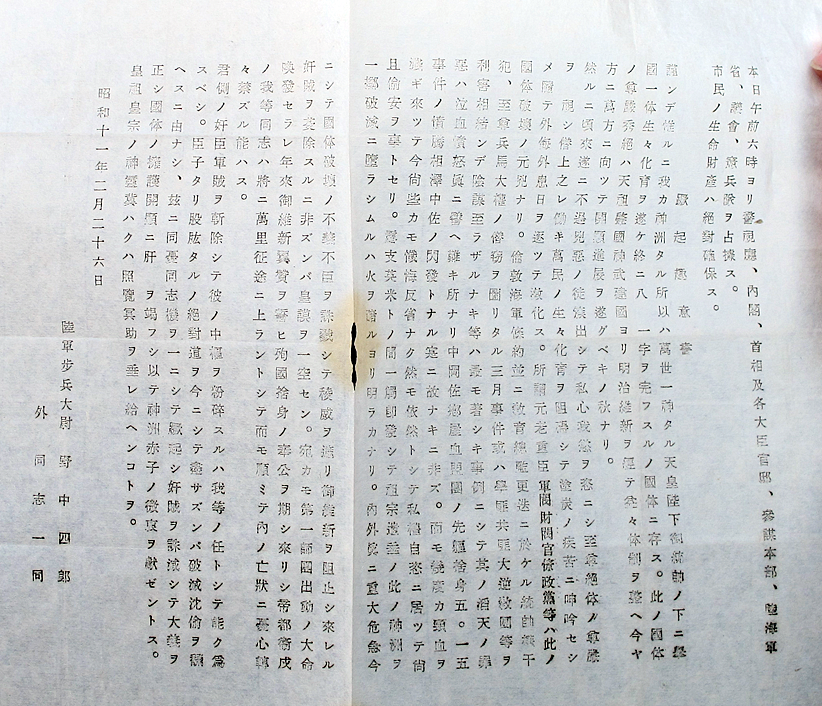 本日午前六時ヨリ警視廳、内閣、首相及各大臣官邸、參謀本部、陸海軍
省、議會、憲兵隊ヲ占據ス。
市民ノ生命財産ハ絶對確保ス。
蹶起趣意書
謹ンデ惟ルニ我カ神洲タル所以ハ萬世一神タル天皇陛下御統帥ノ下ニ擧
國一体生々化育ヲ遂ケ終ニ八 一宇ヲ完フスルノ國体ニ存ス。此ノ國体
ノ尊嚴秀絶ハ天祖肇國神武建國ヨリ明治維新ヲ經テ益々体制ヲ整ヘ今ヤ
方ニ萬方ニ向ツテ開顯進展ヲ遂グベキノ秋ナリ。
然ルニ頃來遂ニ不逞兇惡ノ徒簇出シテ私心我慾ヲ恣ニシ至尊絶体ノ尊嚴
ヲ 視シ僭上之レ働キ萬民ノ生々化育ヲ阻碍シテ塗炭ノ疾苦ニ呻吟セシ
メ隨テ外侮外患日ヲ逐ツテ激化ス。所謂元老重臣軍閥財閥官僚政黨等ハ此ノ
國体破壞ノ元兇ナリ。倫敦海軍條約並ニ教育總監更迭ニ於ケル統帥權干
犯、至尊兵馬大權ノ僭窃ヲ圖リタル三月事件或ハ學匪共匪大逆教團等ヲ
利害相結ンデ陰謀至ラザルナキ等ハ最モ著シキ事例ニシテ其ノ滔天ノ罪
惡ハ泣血憤怒眞ニ譬ヘ難キ所ナリ中岡佐郷屋血盟團ノ先驅捨身五。一五
事件ノ憤騰相澤中佐ノ閃發トナル寔ニ故ナキニ非ズ。而モ幾度カ頸血ヲ
濺ギ來ツテ今尚些カモ懺悔反省ナク然モ依然トシテ私權自恣ニ居ツテ苟
且偸安ヲ事トセリ。露支英米トノ間一觸即發シテ祖宗遺垂ノ此ノ神洲ヲ
一擲破滅ニ墮ラシムルハ火ヲ睹ルヨリ明ラカナリ。内外眞ニ重大危急今
ニシテ國体破壞ノ不義不臣ヲ誅戮シテ稜威ヲ遮リ御維新ヲ阻止シ來レル
奸賊ヲ芟除スルニ非ズンバ皇謨ヲ一空セン。宛カモ第一師團出動ノ大命
渙發セラレ年來御維新翼賛ヲ誓ヒ殉國捨身ノ奉公ヲ期シ來リシ帝都衛戍
ノ我等同志ハ將ニ萬里征途ニ上ラントシテ而モ顧ミテ内ノ亡狀ニ憂心轉
々禁ズル能ハス。
君側ノ奸臣軍賊ヲ斬除シテ彼ノ中樞ヲ粉碎スルハ我等ノ任トシテ能ク爲
スベシ。臣子タリ股肱タルノ絶對道ヲ今ニシテ盡サズンバ破滅沈倫ヲ飜
ヘスニ由ナシ、玆ニ同憂同志機ヲ一ニシテ蹶起シ奸賊ヲ誅滅シテ大義ヲ
正シ國体ノ擁護開顯ニ肝 ヲ竭フシ以テ神洲赤子ノ微衷ヲ獻ゼントス。
皇祖皇宗ノ神靈冀ハクハ照覽冥助ヲ垂レ給ヘンコトヲ。
昭和十一年二月二十六日
陸軍歩兵大尉 野中四郎
外同志一同